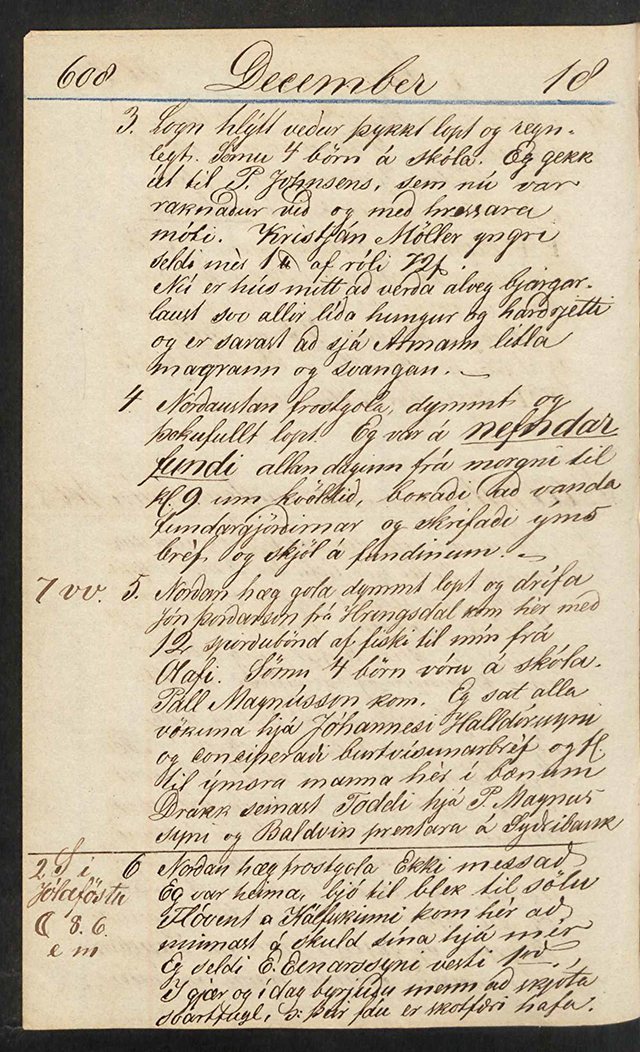 608 December 18
3. Logn hlýtt veður þykkt lopt og regn-
legt. Sömu 4 börn á skóla. Eg gekk
út til P. Johnsens, sem nú var
raknaður við og með hressara
móti. Kristján Möller yngri
seldi mèr 1 af róli 72
Nú er hús mitt að verða alveg bjargar-
laust svo allir líða hungur og harðrjetti
og er sarast að sjá Armann litla
magrann og svangan. —
4 Norðaustan frostgola, dymmt og
þokufullt lopt. Eg var á nefndar
fundi allan daginn frá morgni til
Kl 9. um kvöldið, bokaði að vanda
fundargjörðirnar og skrifaði ýms
brèf og skjöl á fundinum. —
7 vv. 5. Norðan hæg gola dymmt lopt og drífa
Jón þorðarson frá Hringsdal kom hèr með
12 spordubönd af fiski til mín frá
Olafi. Sömu 4 börn vóru á skóla.
Páll Magnússon kom. Eg sat alla
vökuna hjá Jóhannesi Halldórssyni
og conciperaði burtvísunarbrèf og fl.
til ýmsra manna hèr í bænum
Drakk seinast Toddi hjá P. Magnus
syni og Baldvin prentara á Syðribauk
2. S í 6 Norðan hæg frostgola Ekki messað
Jólaföstu Eg var heima, bjó til blek til sölu
8. 6. Flóvent a Kálfskinni kom hèr að
e m minnast á skuld sína hjá mér
Eg seldi E. Einarssyni vesti
I gjær og í dag byrjuðu menn að skjóta
svartfugl, þ: þeir fáu er skotfæri hafa.